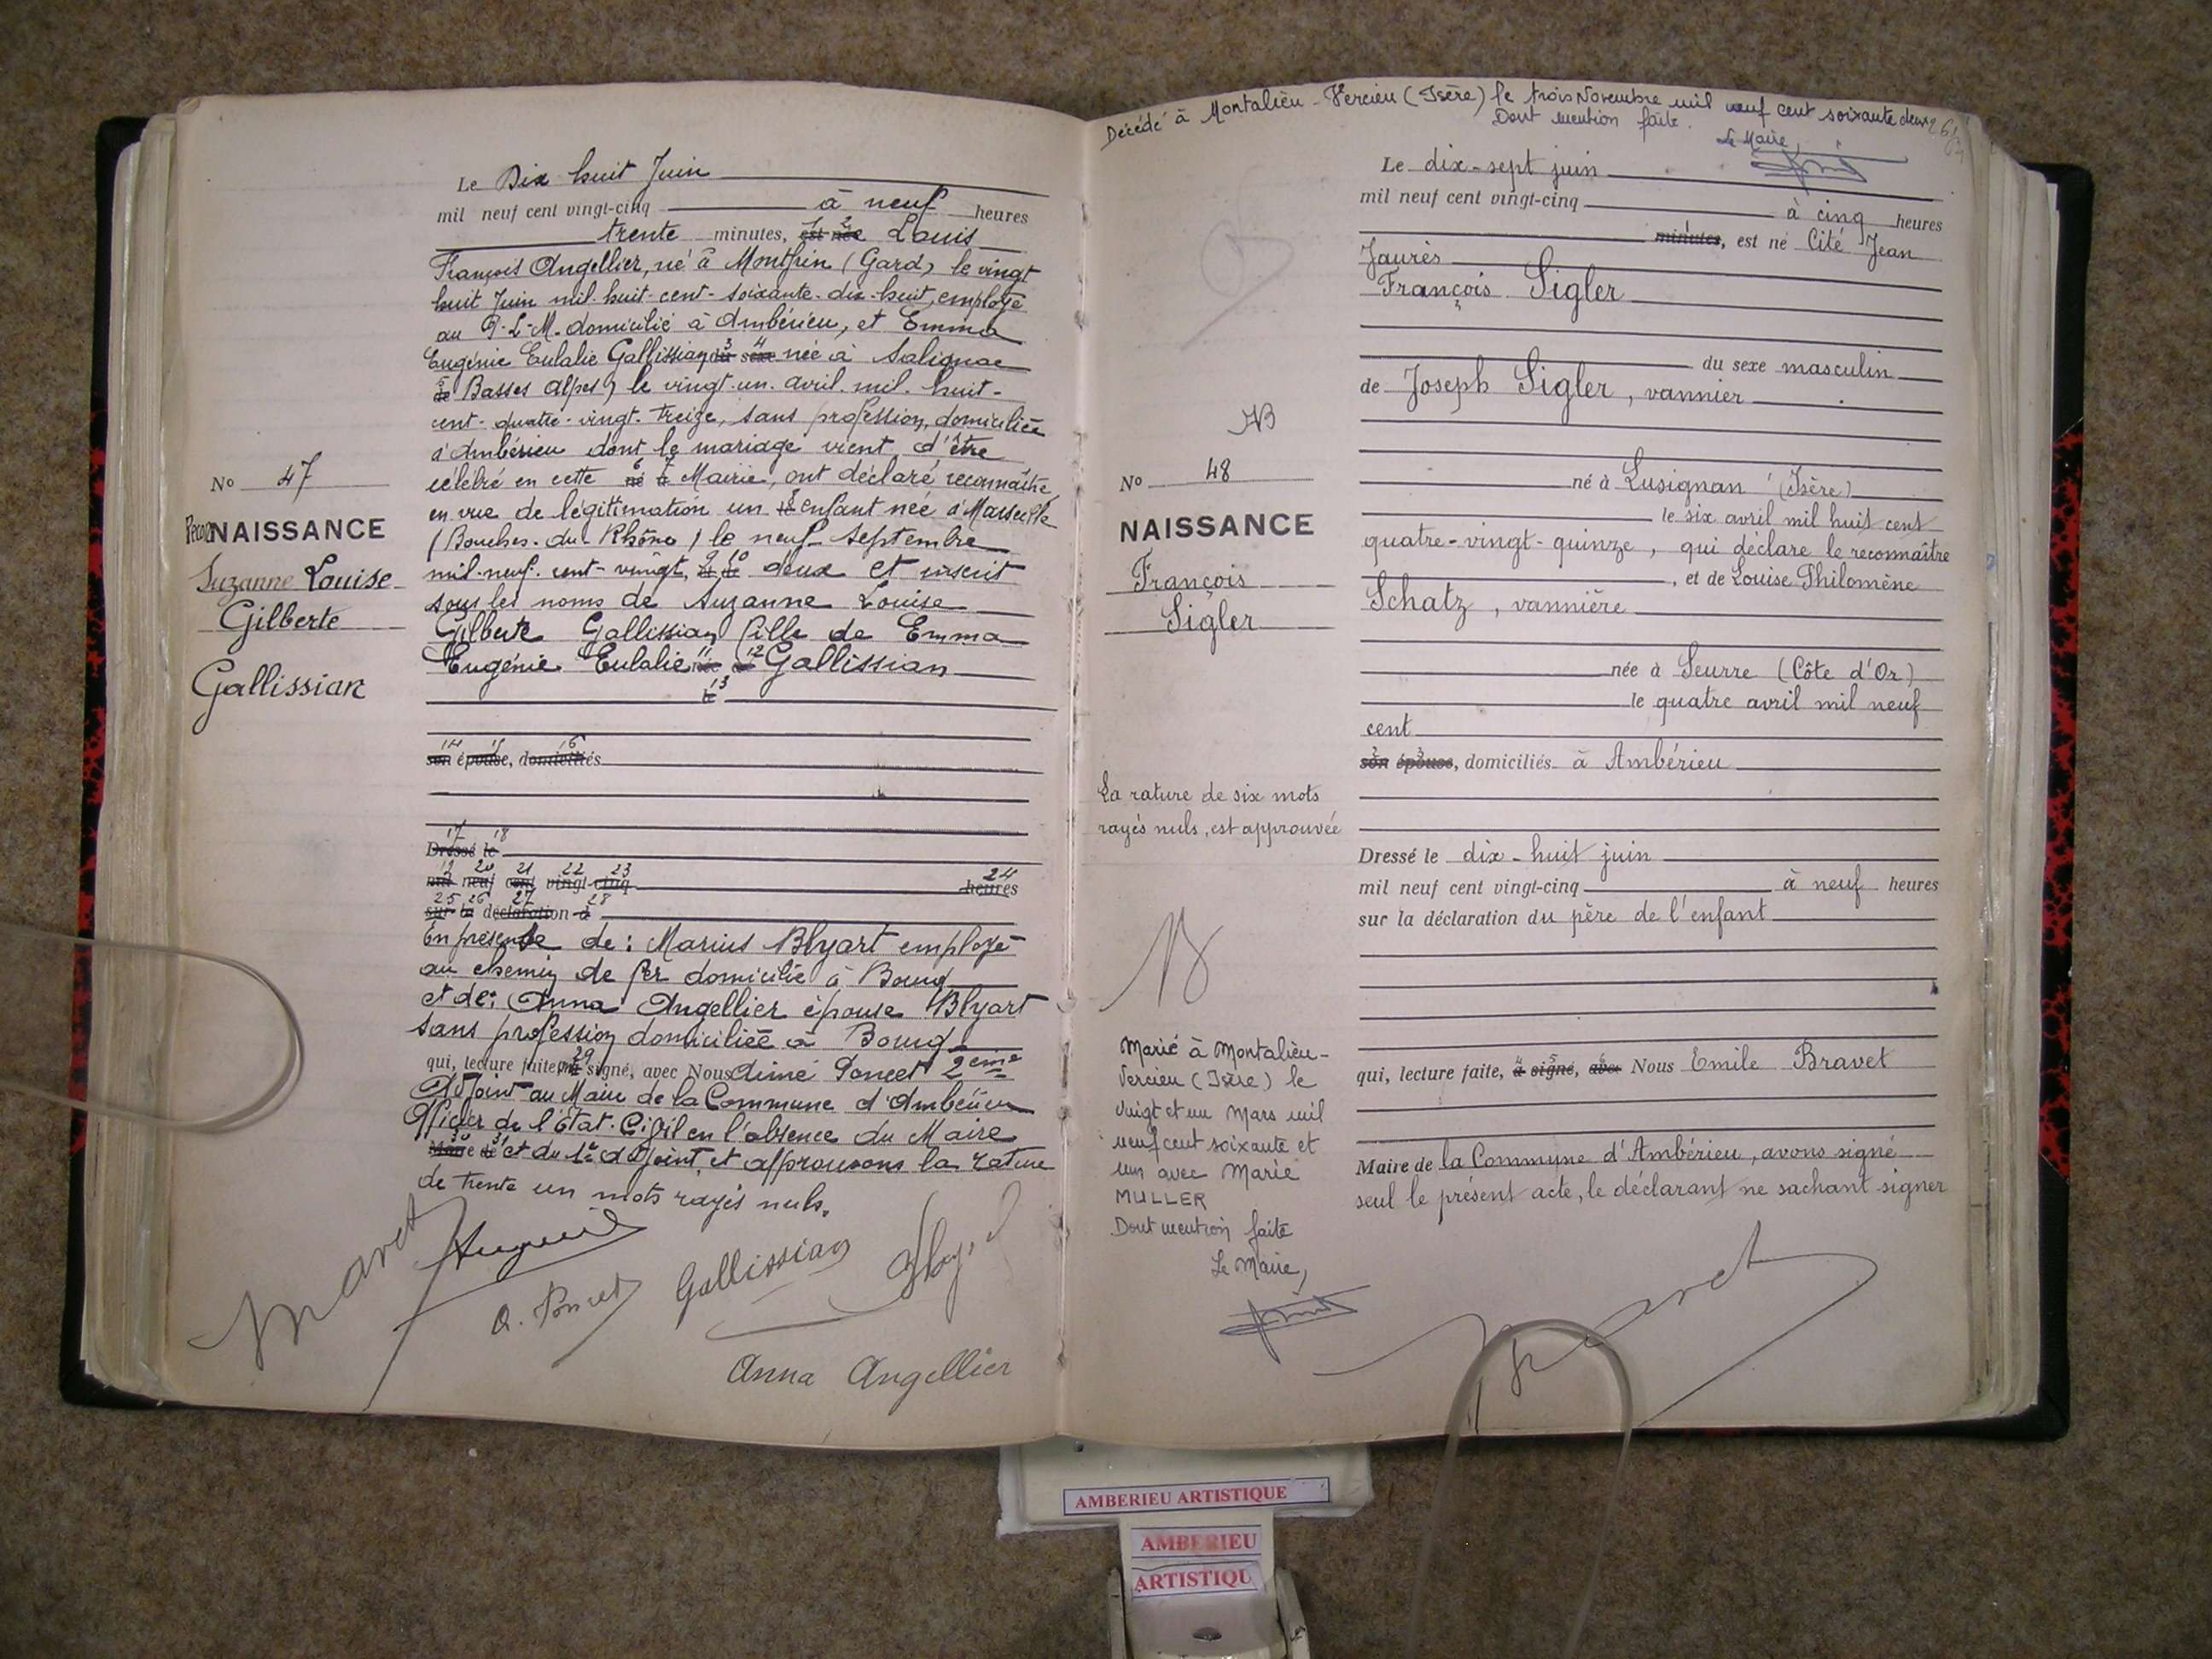 Le Dix huit Juin
mil neuf cent vingt-cinq à neuf heures
trente minutes, est née Louis
François Angellier, né à Montfrin (Gard) le vingt
huit Juin mil-huit-cent-soixante-dix-huit, employé
au P.L.M. domicilié à Ambérieu, et Emma
Eugénie Eulalie Gallissian du sexe née à Salignac
de Basses Alpes) le vingt-un-avril-mil-huit-
cent-quatre-vingt-treize, sans profession, domiciliée
à Ambérieu dont le mariage vient d'être
célébré en cette né à Mairie, ont déclaré reconnaître
en vue de légitimation un le enfant née à Marseille
(Bouches-du-Rhône) le neuf Septembre
mil-neuf-cent-vingt, deux et inscrit
sous les noms de Suzanne Louise
Gilberte Gallissian fille de Emma
Eugénie Eulalie née à Gallissian
le
son épouse, domiciliés
Dressé le
mil neuf cent vingt-cinq heures
sur la déclaration d
En présence de: Marius Blyart employé
au chemin de fer domicilié à Bourg
et de: Anna Angellier épouse Blyart
sans profession domiciliée à Bourg
qui, lecture faite, ont signé, avec Nous Aimé Poncet 2eme
Adjoint au Maire de la Commune d'Ambérieu
Officier de l'Etat-Civil en l'absence du Maire
Maire de et du 1er adjoint, et approuvons la rature
de trente un mots rayés nuls.
A. Poncet
Gallissian
Anna Angellier
No 47
Recon NAISSANCE
Suzanne Louise
Gilberte
Gallissian
Décédé à Montalieu-Vercieu (Isère) le trois Novembre mil neuf cent soixante deux
Dont mention faite.
Le Maire,
Le dix-sept juin
mil neuf cent vingt-cinq à cinq heures
minutes, est né Cité Jean
Jaurès
François Sigler
du sexe masculin
de Joseph Sigler, vannier
né à Lusignan (Isère)
le six avril mil huit cent
quatre-vingt-quinze, qui déclare le reconnaître
, et de Louise Philomène
Schatz, vannière
née à Seurre (Côte d'Or)
le quatre avril mil neuf
cent
son épouse, domiciliés à Ambérieu
Dressé le dix-huit juin
mil neuf cent vingt-cinq à neuf heures
sur la déclaration du père de l'enfant
qui, lecture faite, a signé, avec Nous Emile Bravet
Maire de la Commune d'Ambérieu, avons signé
seul le présent acte, le déclarant ne sachant signer
No 48
NAISSANCE
François
Sigler
La rature de six mots
rayés nuls, est approuvée
Marié à Montalieu-
Vercieu (Isère) le
vingt et un Mars mil
neuf cent soixante et
un avec Marie
MULLER
Dont mention faite
Le Maire,
AMBERIEU ARTISTIQUE
AMBERIEU
ARTISTIQU